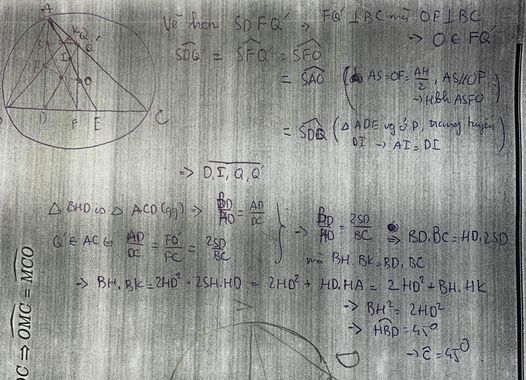 Vẽ hcn SDFQ' → FQ' ⊥ BC mà OF ⊥ BC
→ O ∈ FQ'
SDQ' = SFQ' = SFO
= SAO ( AS = OF = AH/2, AS // OF → Hbh ASFO )
= SDQ ( △ ADE vg ở D, trung tuyến DI → AI = DI )
⇒ D, I, Q, Q'
△ BHD ∽ △ ACD (gg) → BD/HD = AD/DC
Q' ∈ AC ⇔ AD/DC = FQ'/FC = 2SD/BC
→ BD/HD = 2SD/BC ⇒ BD.BC = HD.2SD
mà BH.BK = BD.BC
→ BH.BK = 2HD² + 2SH.HD = 2HD² + HD.HA = 2HD² + BH.HK
→ BH² = 2HD²
→ HBD = 45°
→ C = 45°
OC ⇒ OMC = MCO
A
K
Q
Q'
S
I
H
O
D
F
E
C